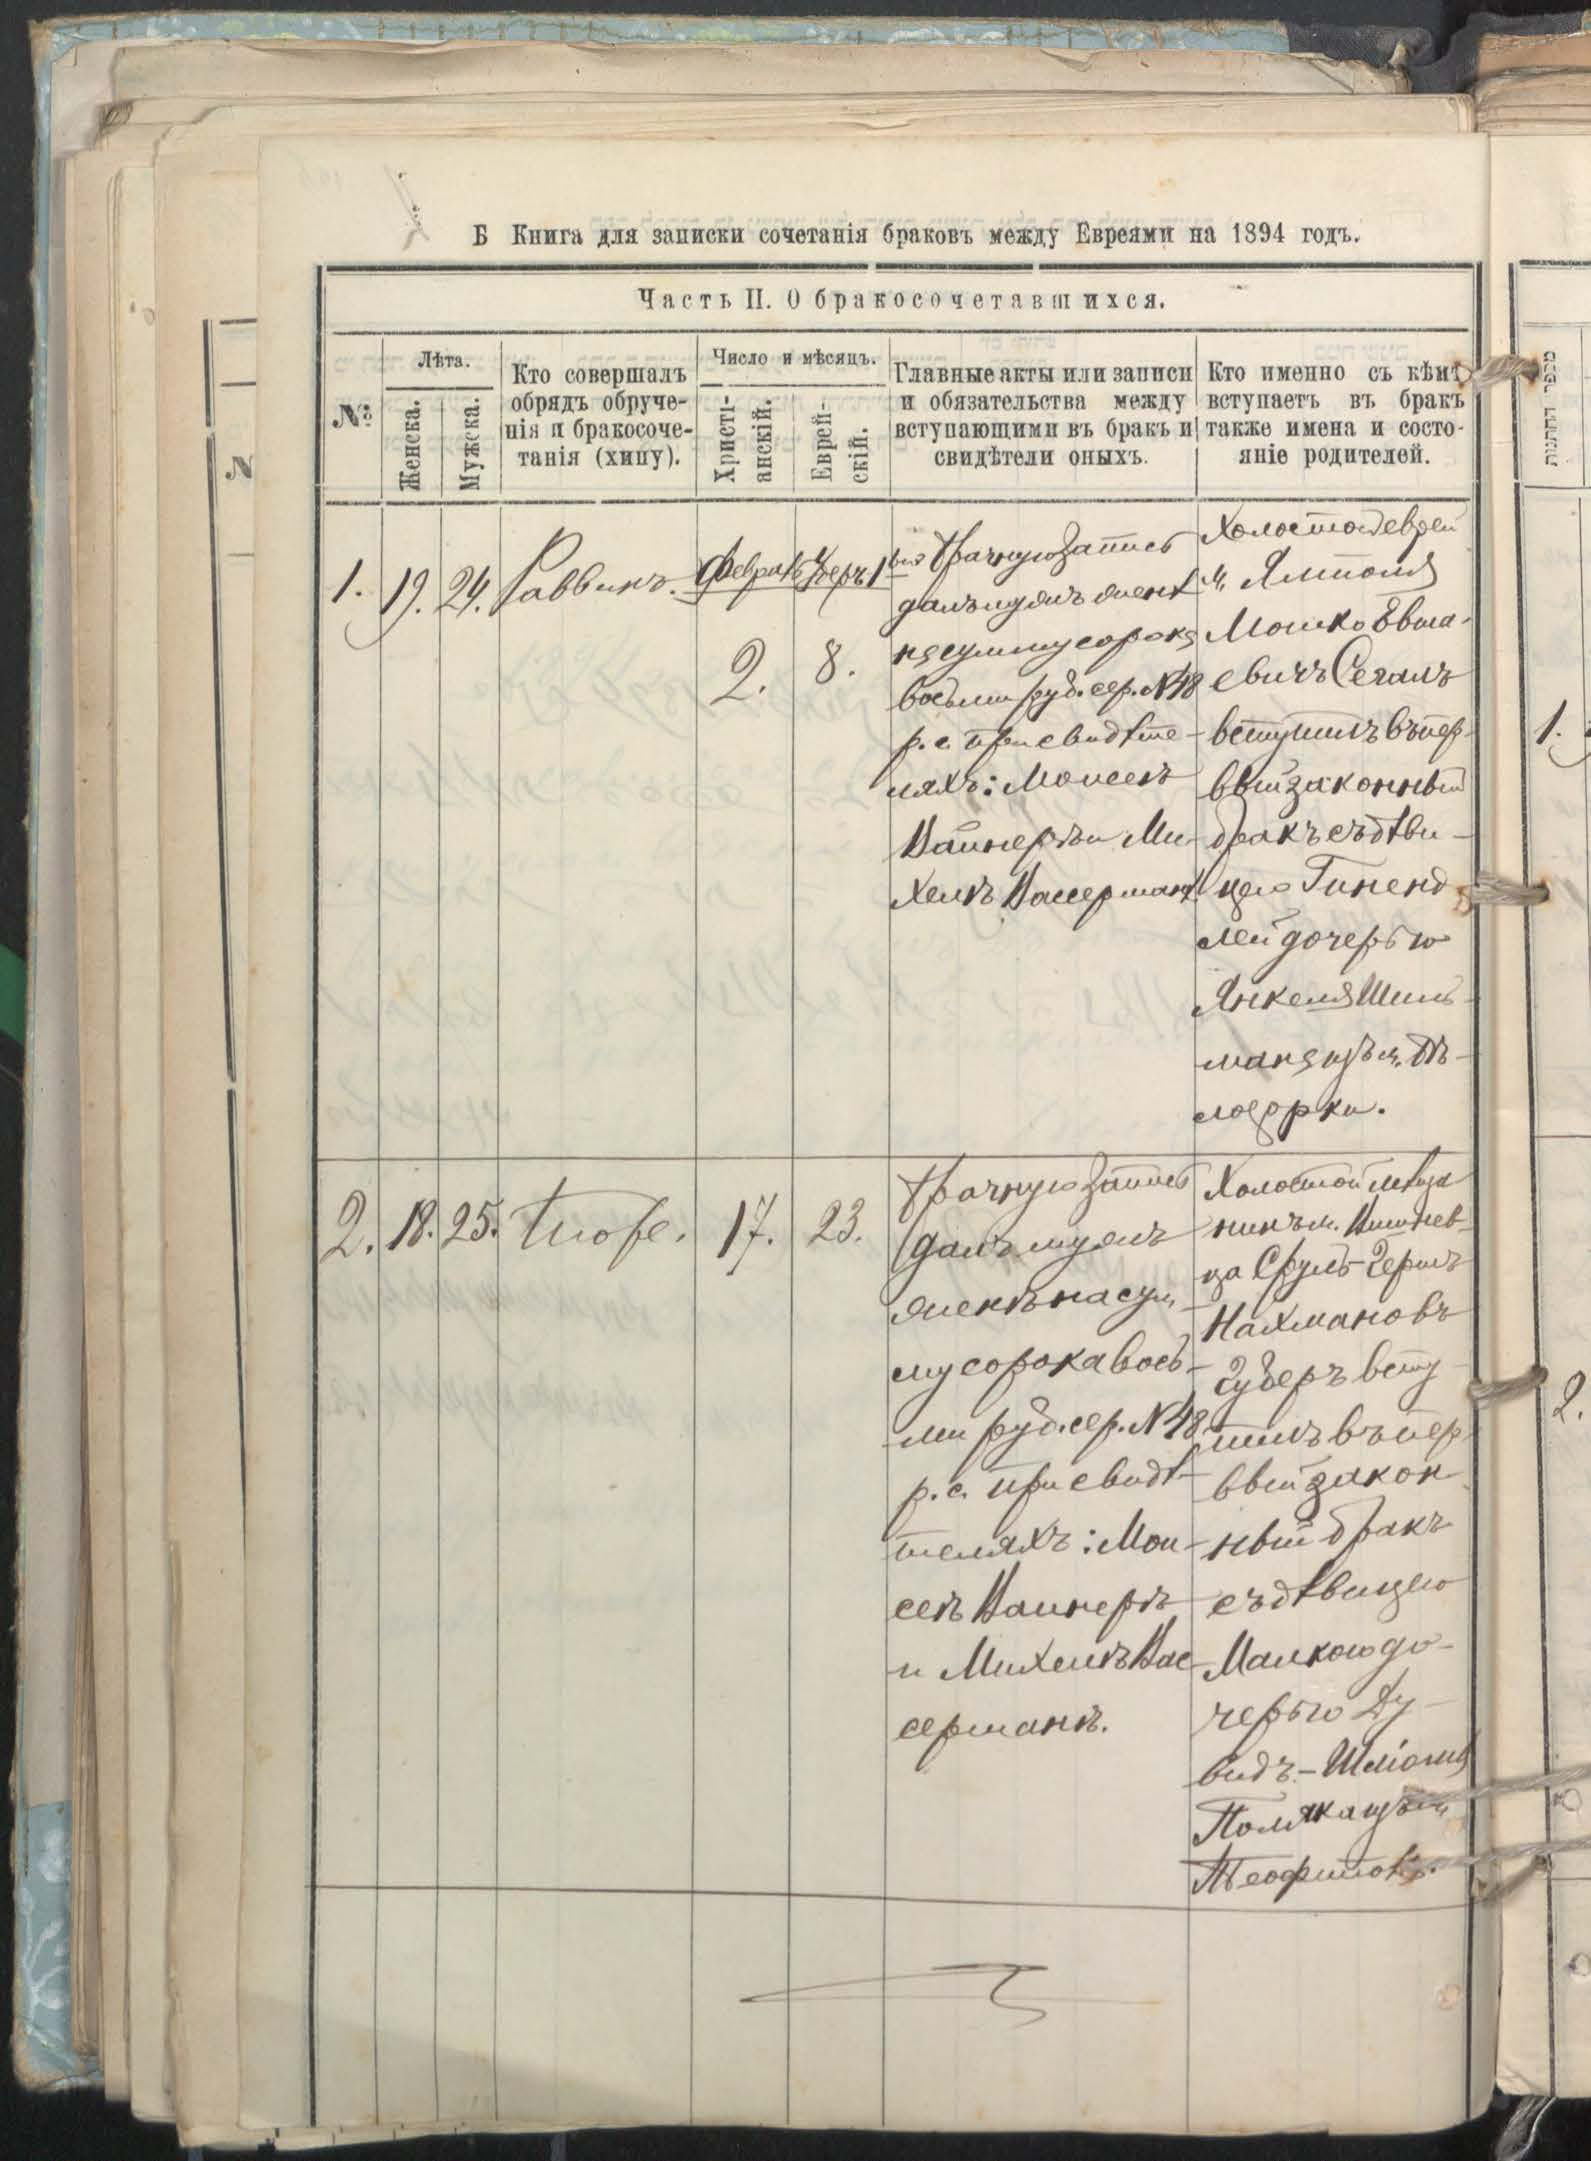 Б Книга для записки сочетанія браковъ между Евреями на 1894 годъ.
Часть II. О бракосочетавшихся.
№
Лѣта.
Женска.
Мужска.
Кто совершалъ
обрядъ обруче-
нія и бракосоче-
танія (хипу).
Число и мѣсяцъ.
Христі-
анскій.
Еврей-
скій.
Главные акты или записи
и обязательства между
вступающими въ бракъ и
свидѣтели оныхъ.
Кто именно съ кѣмъ
вступаетъ въ бракъ
также имена и состо-
яніе родителей.
1. 19. 24. Раввинъ. Февраль
2. 8.
Брачную запись
далъ мужъ женѣ
на сумму сорока
восьми руб. сер. № 48
р. с. при свидѣте-
ляхъ: Моисеѣ
Вайнерѣ и Ми-
хелѣ Вассерманѣ
Холостой еврей
м. Ямполя
Мошко
евичъ Сегалъ
вступилъ въ пер-
вый законный
бракъ съ дѣви-
цею Гиненд
лей дочерью
Янкеля Шил-
мана изъ м. Бѣ-
лозорки.
2. 18. 25. Тотъ же. 17. 23.
Брачную запись
далъ мужъ
женѣ на сум-
му сорока вось-
ми руб. сер. № 48
р. с. при свидѣ-
теляхъ: Мои-
сеѣ Вайнерѣ
и Михелѣ Вас-
серманѣ.
Холостой мѣща
нинъ м. Вишнев-
ца Сруль-Гершъ
Нахмановъ
Губеръ всту-
пилъ въ пер-
вый закон-
ный бракъ
съ дѣвицею
Малкою до-
черью Ду-
видъ-Шліомы
Поляка изъ м.
Теофиполь.
1.
2.